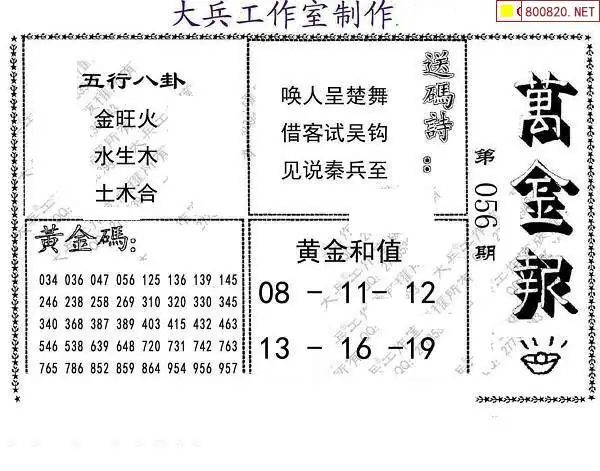 大兵工作室制作
800820.NET
五行八卦
金旺火
水生木
土木合
送碼詩：
唤人呈楚舞
借客试吴钩
见说秦兵至
萬金報
第056期
黃金碼：
034 036 047 056 125 136 139 145
246 238 258 269 310 320 330 345
340 368 387 389 403 415 432 463
546 538 639 648 720 731 742 763
765 786 852 859 864 954 956 957
黄金和值
08 - 11- 12
13 - 16 -19